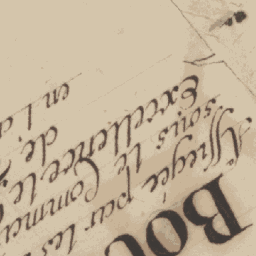 BOU
Affregée par les
sous le Comma
Excellence le
de
en l'a